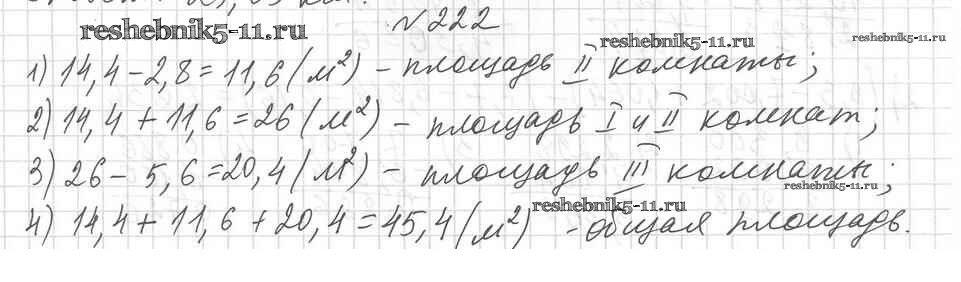 №222
reshebnik5-11.ru
reshebnik5-11.ru
reshebnik5-11.ru
1) 14,4 - 2,8 = 11,6 (м²) - площадь II комнаты;
2) 14,4 + 11,6 = 26 (м²) - площадь I и II комнат;
3) 26 - 5,6 = 20,4 (м²) - площадь III комнаты;
reshebnik5-11.ru
reshebnik5-11.ru
4) 14,4 + 11,6 + 20,4 = 45,4 (м²) - общая площадь.